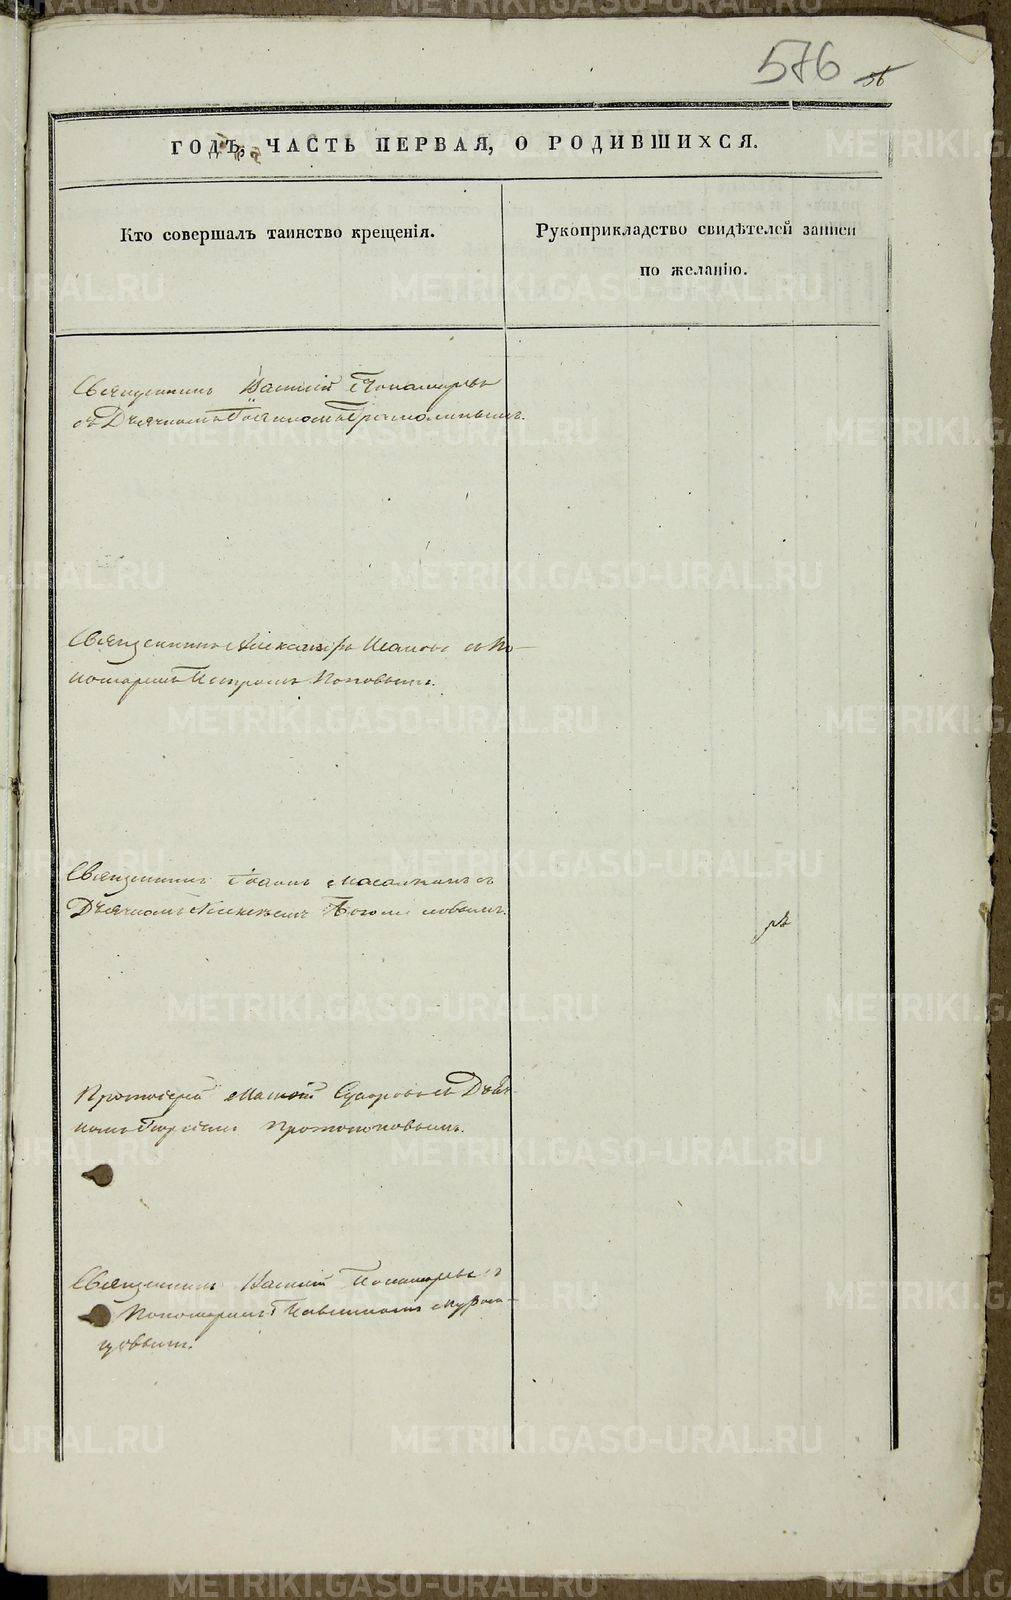 576 56
ГОДЪ, ЧАСТЬ ПЕРВАЯ, О РОДИВШИХСЯ.
Кто совершалъ таинство крещенія.
Рукоприкладство свидѣтелей записи
по желанію.
Священникъ Василій Пономаревъ
съ Дьячкомъ
Священникъ Александръ Ивановъ съ По-
номаремъ Петромъ Поповымъ.
Священникъ Іоаннъ съ
Дьячкомъ Алексѣемъ
Протоіерей Суворовъ съ Дьяч-
комъ Георгіемъ Протопоповымъ.
Священникъ Василій Пономаревъ съ
Пономаремъ
METRIKI.GASO-URAL.RU